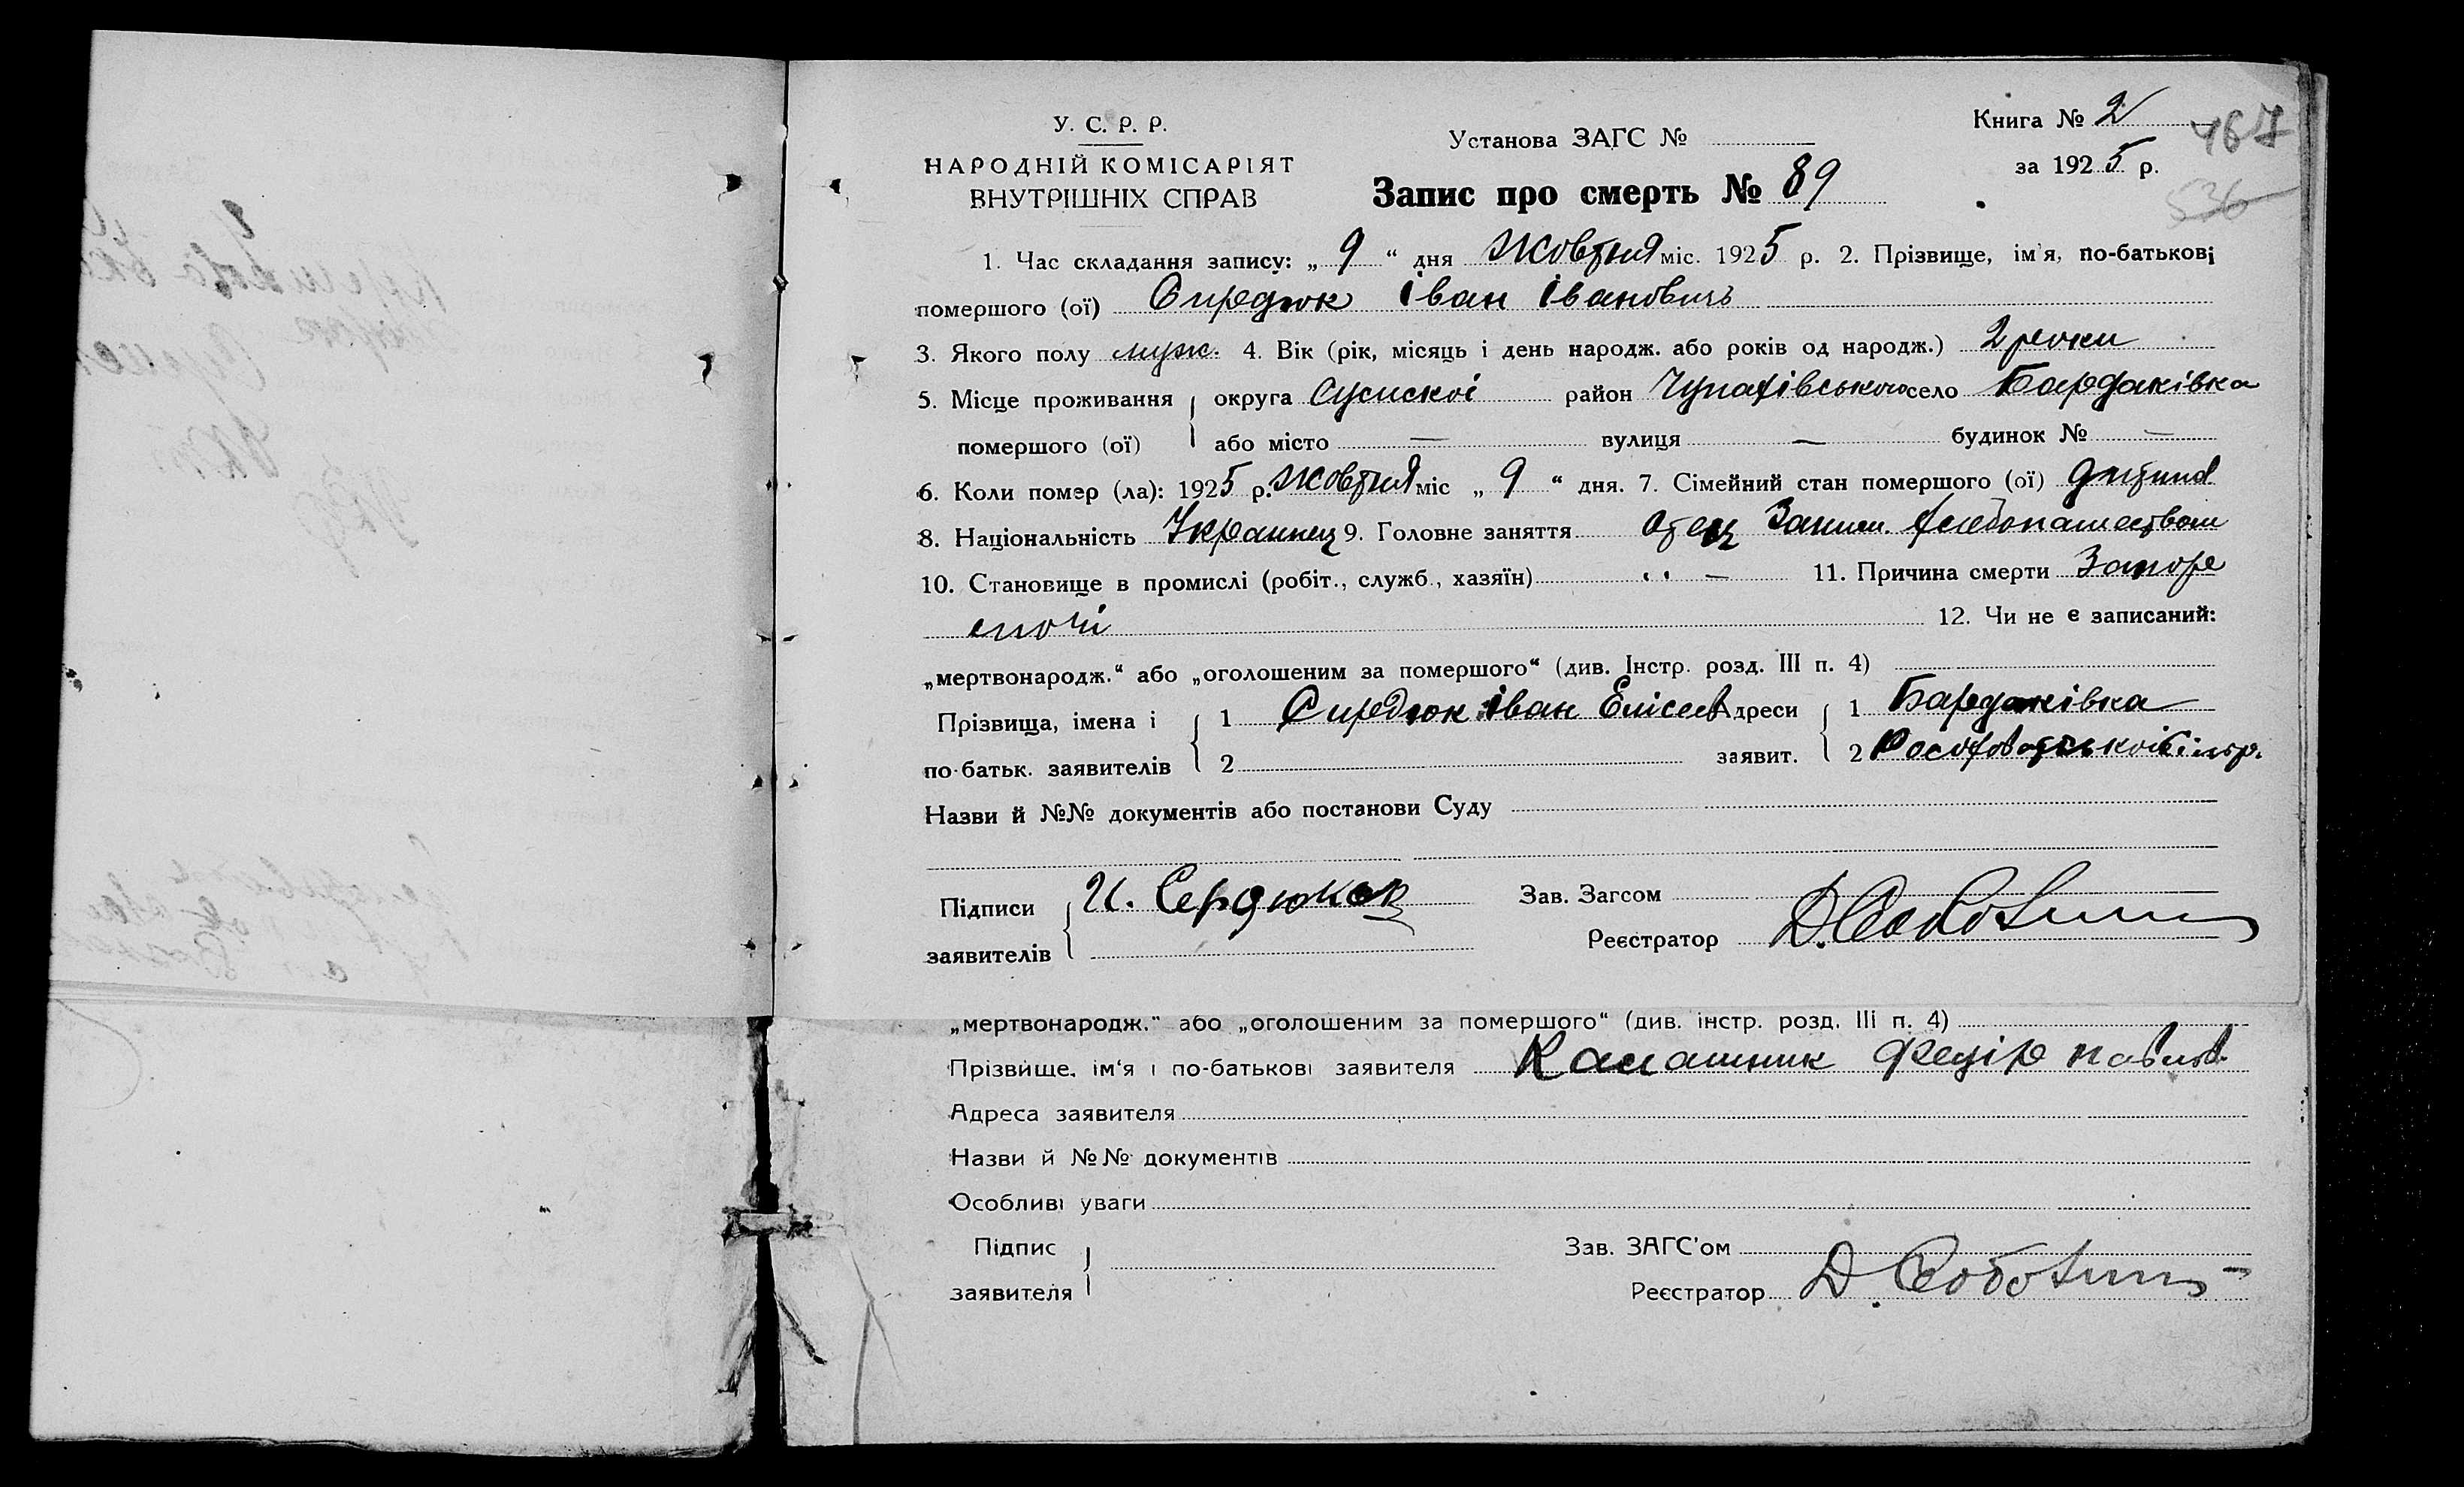 У. С. Р. Р.
НАРОДНІЙ КОМІСАРІЯТ
ВНУТРІШНІХ СПРАВ
Установа ЗАГС №
Книга № 2
467
за 1925 р.
536
Запис про смерть № 89
1. Час складання запису: „ 9 “ дня Жовтня міс. 1925 р. 2. Прізвище, ім'я, по-батькові
помершого (ої) Сирдюк Іван Івановичъ
3. Якого полу муж. 4. Вік (рік, місяць і день народж. або років од народж.) 2 роки
5. Місце проживання округа Сумскоі район Чупахівського село Бардаківка
помершого (ої) або місто — вулиця — будинок № —
6. Коли помер (ла): 1925 р. Жовтня міс „ 9 “ дня. 7. Сімейний стан помершого (ої) дитина
8. Національність Украинец 9. Головне заняття отец Заним. хлебопашеством
10. Становище в промислі (робіт., служб., хазяїн) „ — 11. Причина смерти
12. Чи не є записаний:
„мертвонародж.“ або „оголошеним за помершого“ (див. Інстр. розд. III п. 4)
Прізвища, імена і 1 Сирдюк Іван Елісеев Адреси 1 Бардаківка
по-батьк. заявителів 2 заявит. 2 Сільр.
Назви й №№ документів або постанови Суду
Підписи И. Сердюков Зав. Загсом
заявителів Реєстратор Д. Соботин
„мертвонародж.“ або „оголошеним за помершого“ (див. інстр. розд. III п. 4)
Прізвище, ім'я і по-батькові заявителя Калашник Федір Павлов.
Адреса заявителя
Назви й №№ документів
Особливі уваги
Підпис Зав. ЗАГС'ом
заявителя Реєстратор Д. Соботин